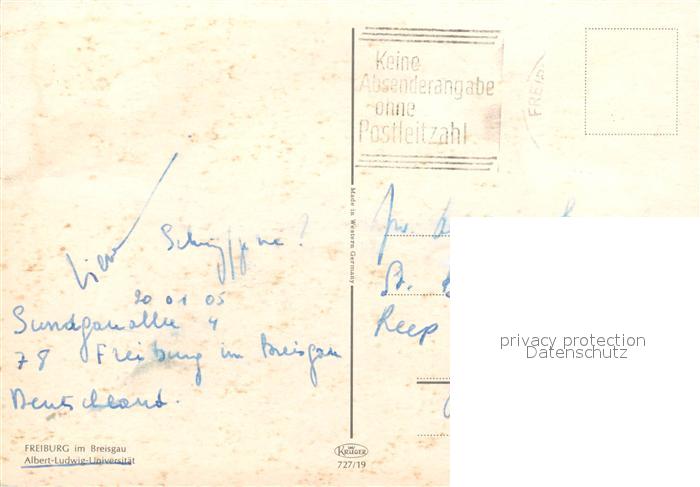 Keine
Absenderangabe
ohne
Postleitzahl
FREIB
Made in Western Germany
St.
Reep
20 01 05
Sundgauallee 4
78 Freiburg im Breisgau
Deutschland.
FREIBURG im Breisgau
Albert-Ludwig-Universität
KRÜGER
727/19
privacy protection
Datenschutz